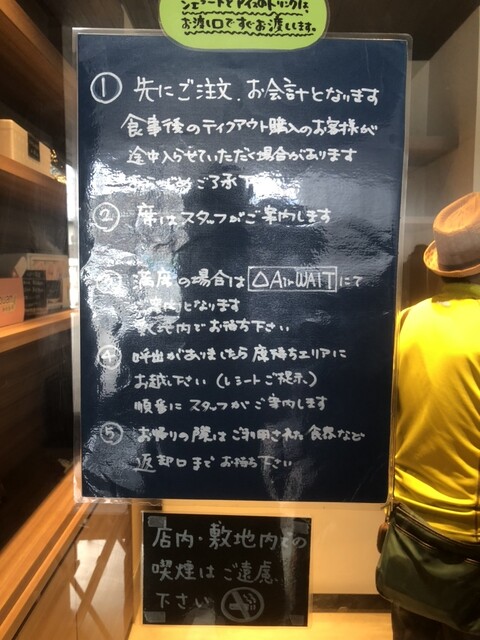 ジェラートとアイスのドリンクは、
お渡し口ですぐお渡しします。
① 先にご注文、お会計となります
食事後のテイクアウト購入のお客様が
途中入らせていただく場合があります
ご了承下
② 席はスタッフがご案内します
③ 満席の場合は △AirWAIT にて
ご案内となります
敷地内でお待ち下さい
④ 呼出がありましたら席待ちエリアに
お越し下さい（レシートご提示）
順番にスタッフがご案内します
⑤ お帰りの際はご利用された食器など
返却口までお持ち下さい
店内・敷地内での
喫煙はご遠慮
下さい